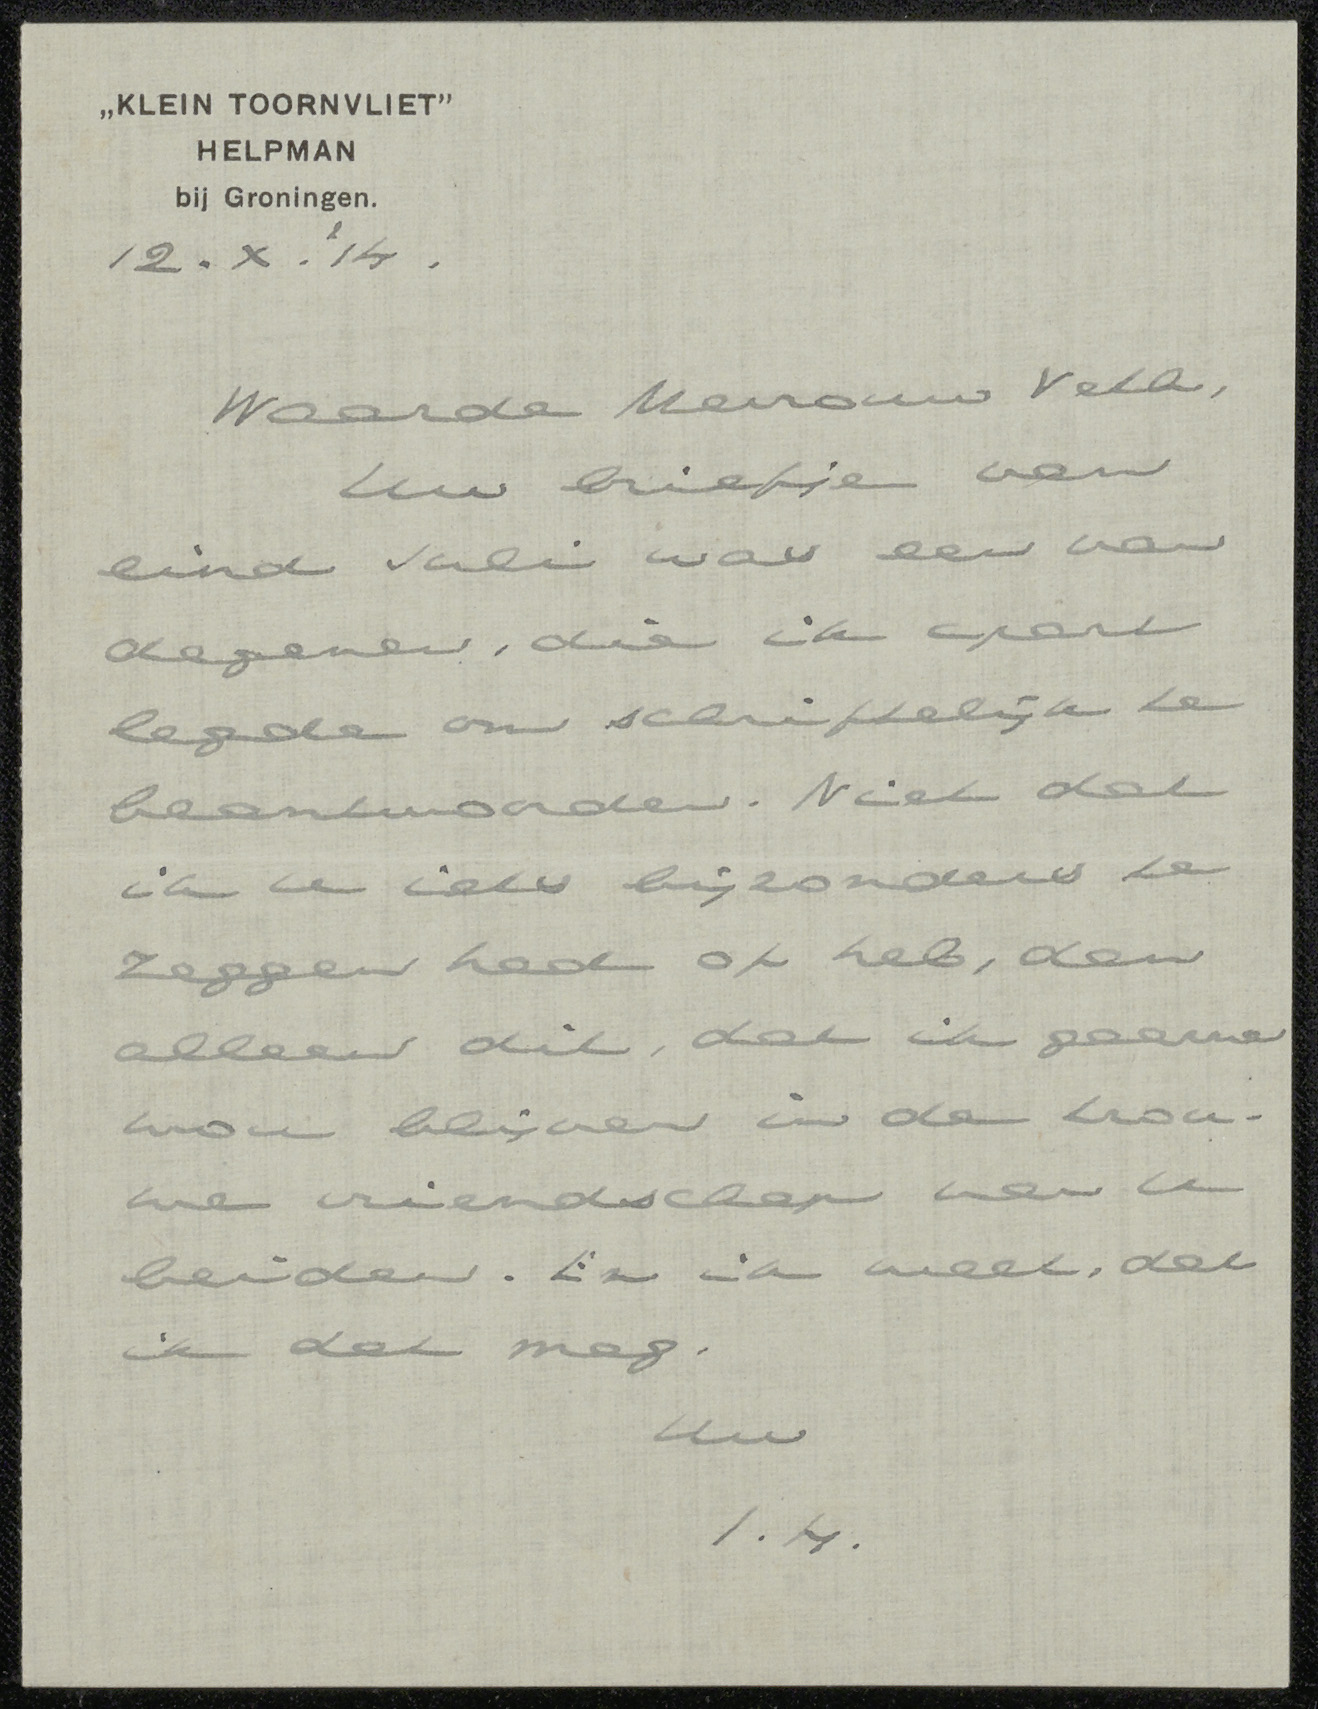 „KLEIN TOORNVLIET”
HELPMAN
bij Groningen.
12. X. '14.
Waarde Mevrouw Veth,
Uw briefje van
eind Juli was een van
degenen, die ik apart
legde om schriftelijk te
beantwoorden. Niet dat
ik u iets bijzonders te
zeggen had of heb, dan
alleen dit, dat ik gaarne
wou blijven in de trou-
we vriendschap van u
beiden. En ik weet, dat
ik dat mag.
Uw